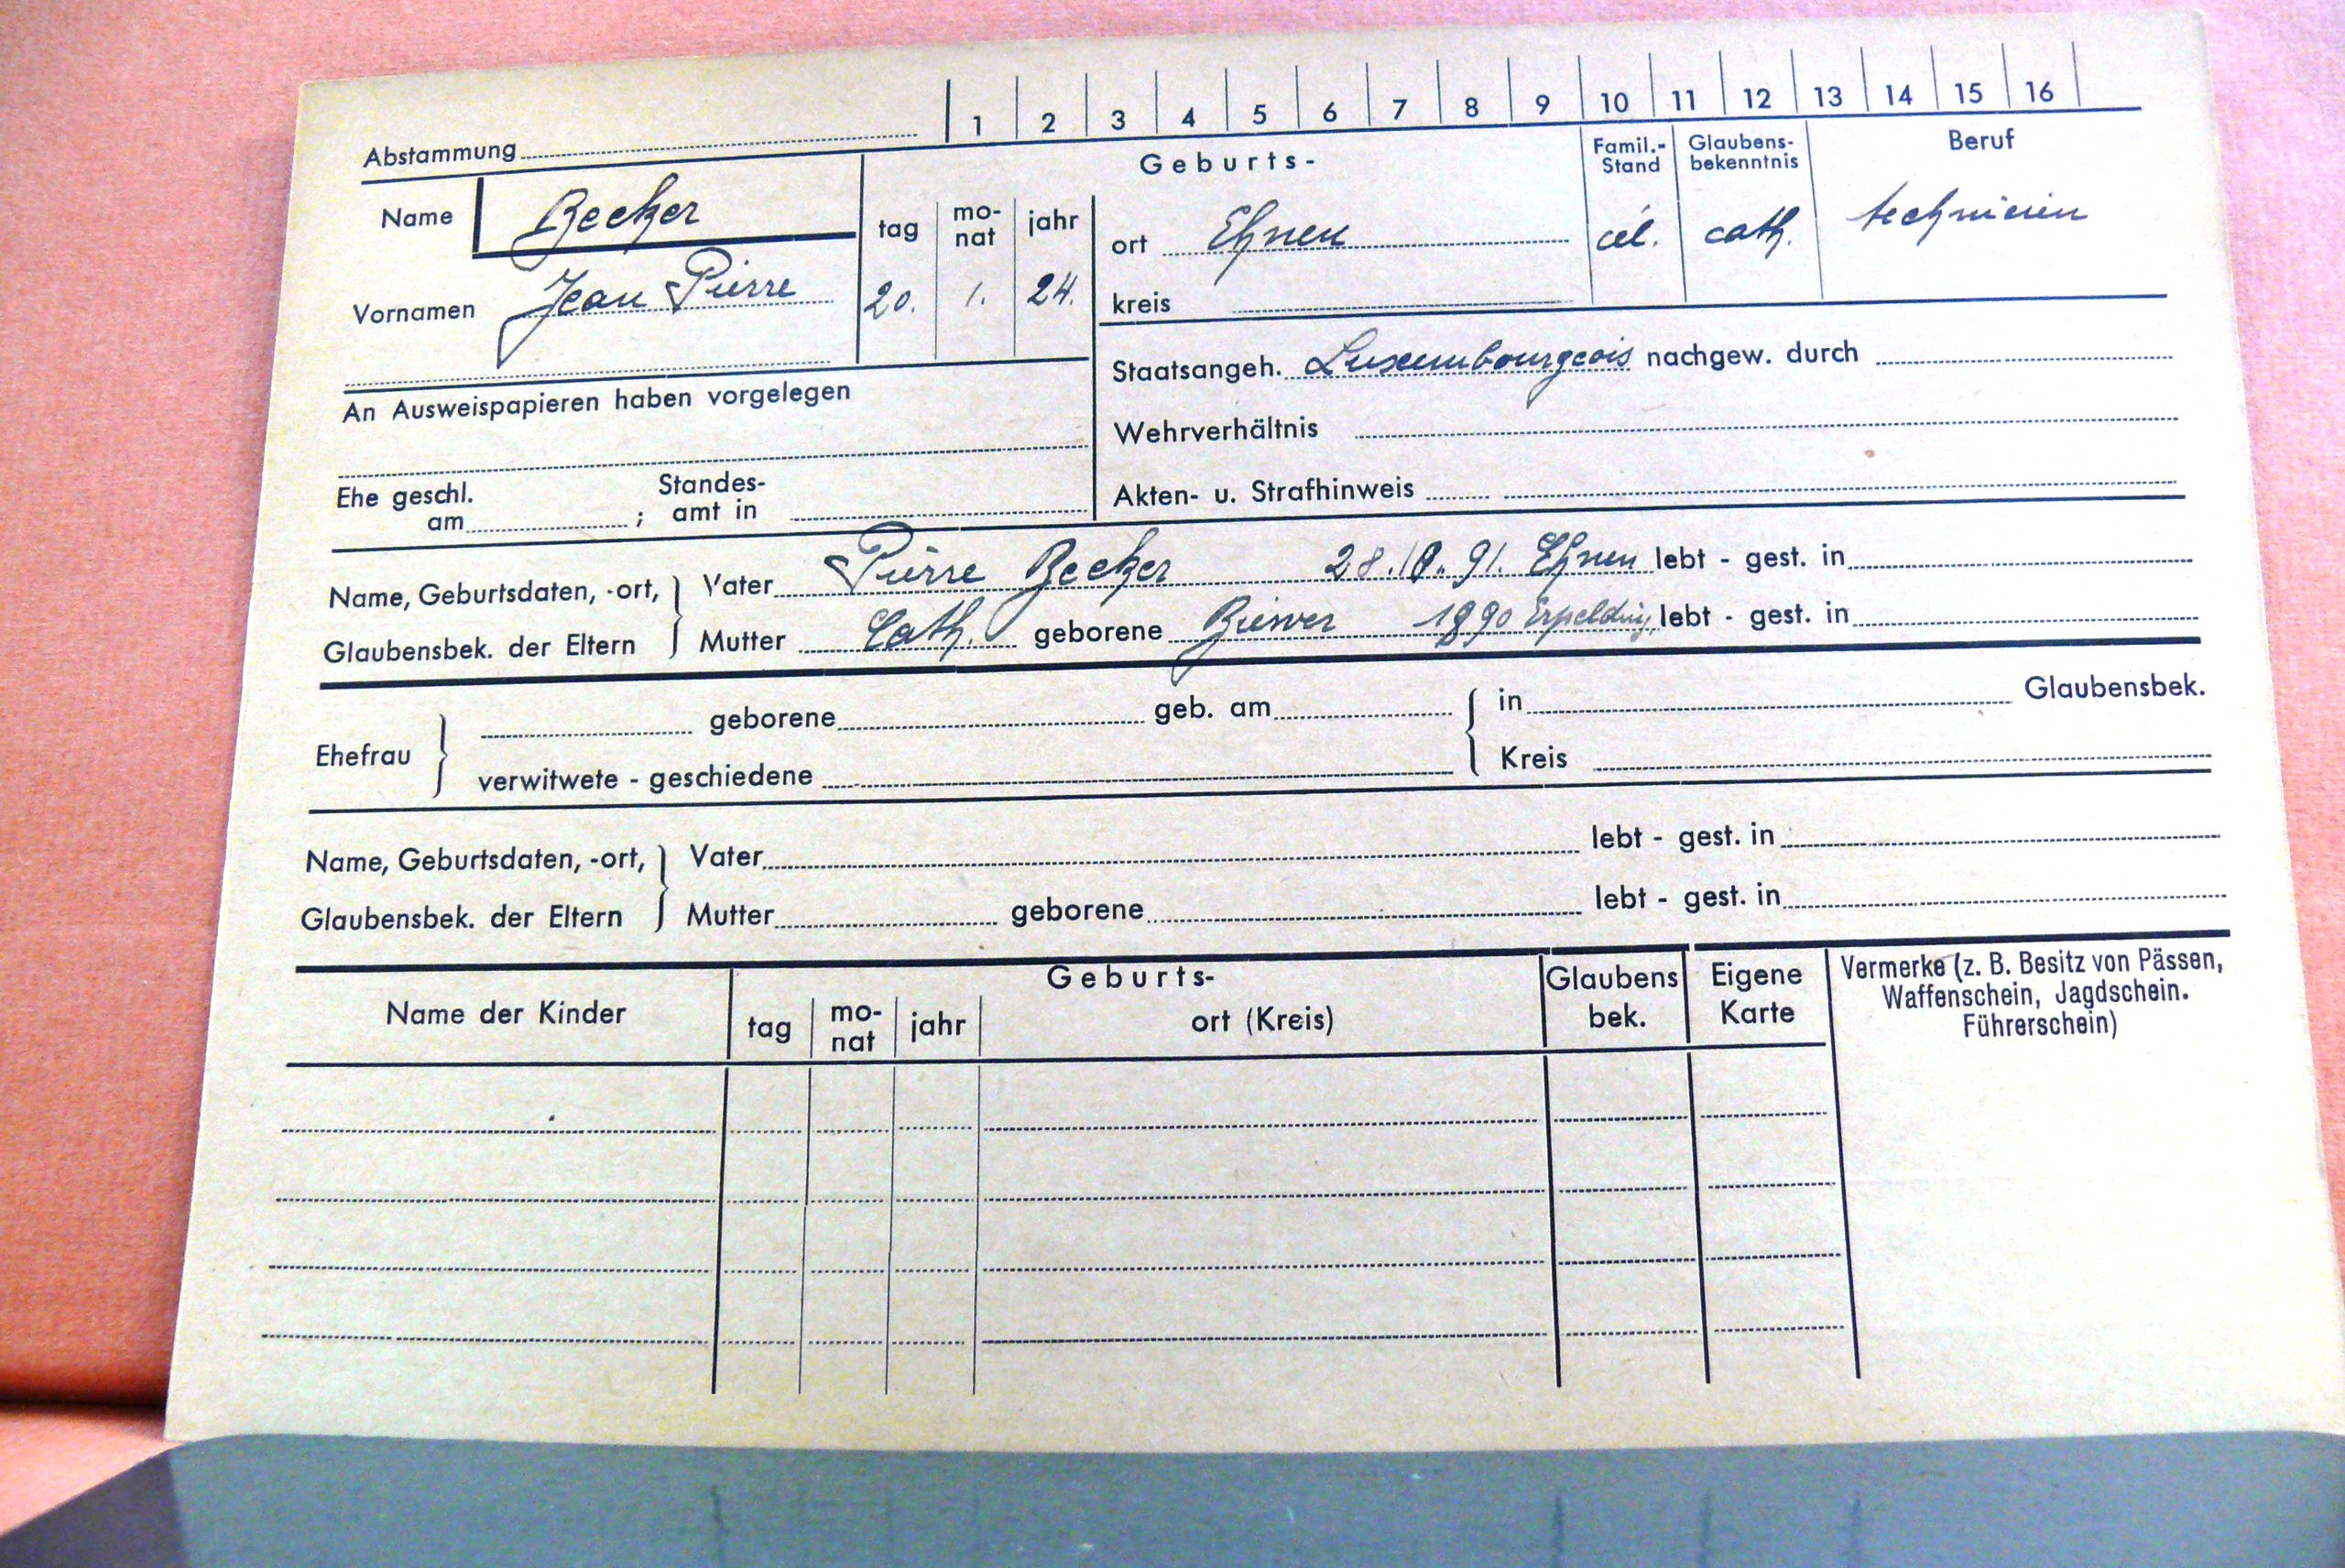 1 2 3 4 5 6 7 8 9 10 11 12 13 14 15 16
Abstammung
Name Becker
Vornamen Jean Pierre
Geburts-
tag mo-nat jahr
20. 1. 24.
ort Ehnen
kreis
Famil.-Stand cél.
Glaubens-bekenntnis cath.
Beruf technicien
An Ausweispapieren haben vorgelegen
Staatsangeh. Luxembourgeois nachgew. durch
Wehrverhältnis
Akten- u. Strafhinweis
Ehe geschl. am ; Standes-amt in
Name, Geburtsdaten, -ort, Glaubensbek. der Eltern
Vater Pierre Becker 28.10.91. Ehnen lebt - gest. in
Mutter Cath. geborene Biewer 1890 Erpelding lebt - gest. in
Ehefrau
geborene geb. am in Glaubensbek.
verwitwete - geschiedene Kreis
Name, Geburtsdaten, -ort, Glaubensbek. der Eltern
Vater lebt - gest. in
Mutter geborene lebt - gest. in
Name der Kinder
Geburts-
tag mo-nat jahr ort (Kreis)
Glaubens bek.
Eigene Karte
Vermerke (z. B. Besitz von Pässen,
Waffenschein, Jagdschein.
Führerschein)